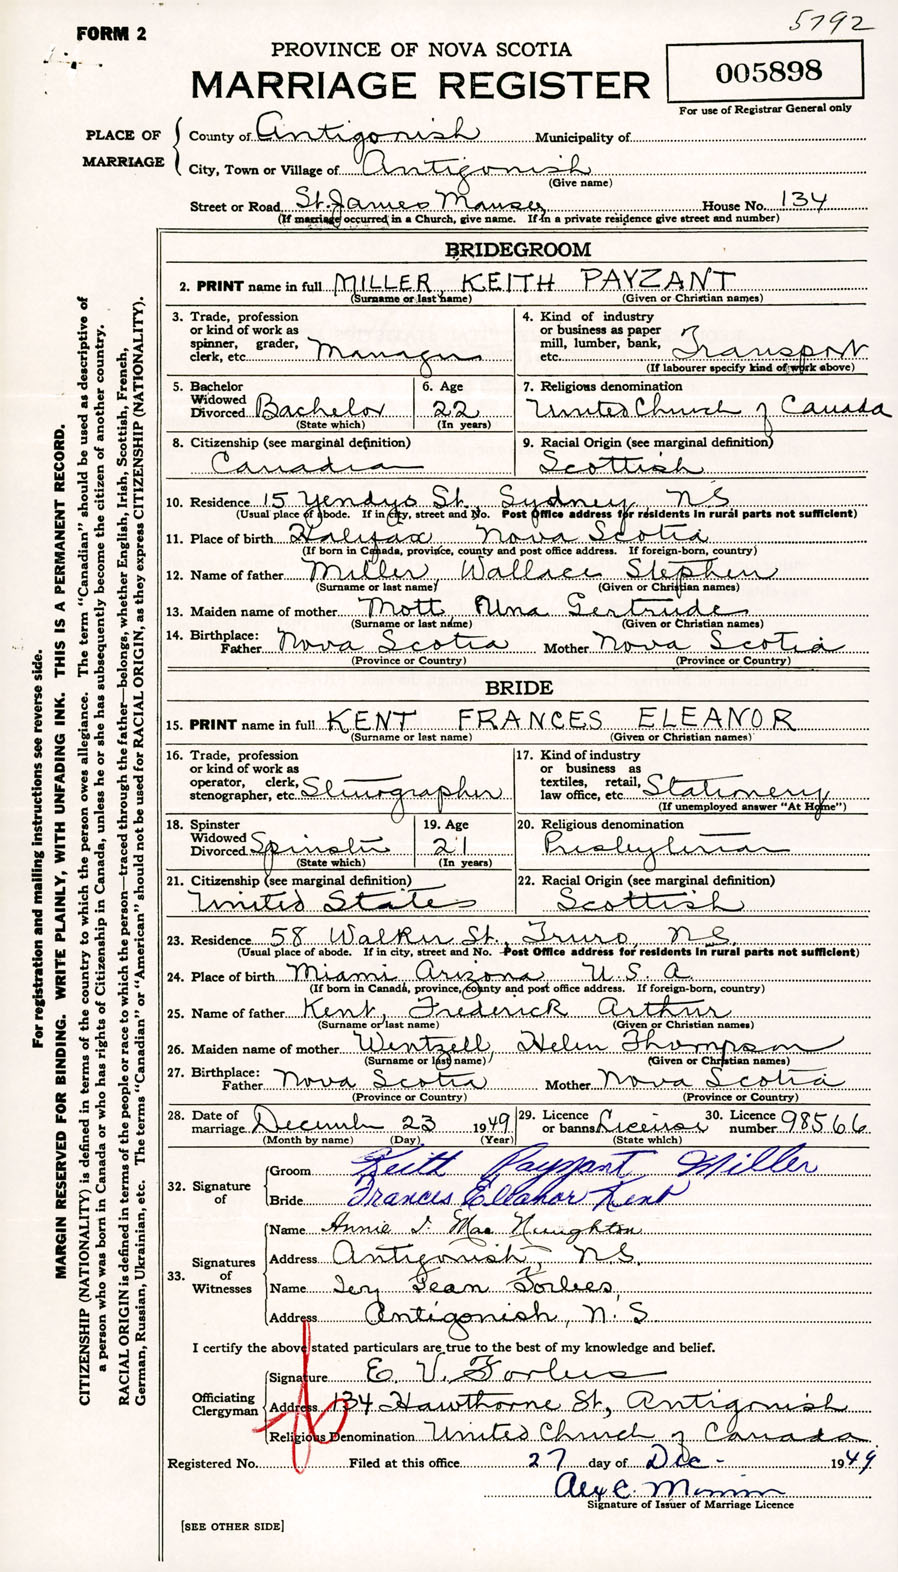 5792
FORM 2
PROVINCE OF NOVA SCOTIA
MARRIAGE REGISTER
005898
For use of Registrar General only
PLACE OF MARRIAGE
County of Antigonish Municipality of
City, Town or Village of Antigonish
(Give name)
Street or Road St. James Manse House No. 134
(If marriage occurred in a Church, give name. If in a private residence give street and number)
BRIDEGROOM
2. PRINT name in full MILLER, KEITH PAYZANT
(Surname or last name) (Given or Christian names)
3. Trade, profession or kind of work as spinner, grader, clerk, etc. Manager
4. Kind of industry or business as paper mill, lumber, bank, etc. Transport
(If labourer specify kind of work above)
5. Bachelor Widowed Divorced Bachelor
(State which)
6. Age 22
(In years)
7. Religious denomination
United Church of Canada
8. Citizenship (see marginal definition)
Canadian
9. Racial Origin (see marginal definition)
Scottish
10. Residence 15 Yendys St. Sydney, N S
(Usual place of abode. If in city, street and No. Post Office address for residents in rural parts not sufficient)
11. Place of birth Halifax Nova Scotia
(If born in Canada, province, county and post office address. If foreign-born, country)
12. Name of father Miller, Wallace Stephen
(Surname or last name) (Given or Christian names)
13. Maiden name of mother Mott, Alma Gertrude
(Surname or last name) (Given or Christian names)
14. Birthplace: Father Nova Scotia Mother Nova Scotia
(Province or Country) (Province or Country)
BRIDE
15. PRINT name in full KENT FRANCES ELEANOR
(Surname or last name) (Given or Christian names)
16. Trade, profession or kind of work as operator, clerk, stenographer, etc. Stenographer
17. Kind of industry or business as textiles, retail, law office, etc. Stationery
(If unemployed answer "At Home")
18. Spinster Widowed Divorced Spinster
(State which)
19. Age 21
(In years)
20. Religious denomination
Presbyterian
21. Citizenship (see marginal definition)
United States
22. Racial Origin (see marginal definition)
Scottish
23. Residence 58 Walker St., Truro, N.S.
(Usual place of abode. If in city, street and No. Post Office address for residents in rural parts not sufficient)
24. Place of birth Miami Arizona U.S.A
(If born in Canada, province, county and post office address. If foreign-born, country)
25. Name of father Kent, Frederick Arthur
(Surname or last name) (Given or Christian names)
26. Maiden name of mother Wentzell, Helen Thompson
(Surname or last name) (Given or Christian names)
27. Birthplace: Father Nova Scotia Mother Nova Scotia
(Province or Country) (Province or Country)
28. Date of marriage December 23 1949
(Month by name) (Day) (Year)
29. Licence or banns License
(State which)
30. Licence number 98566
32. Signature of
Groom Keith Payzant Miller
Bride Frances Eleanor Kent
33. Signatures of Witnesses
Name Annie J. Mac Naughton
Address Antigonish, N.S.
Name Jean Forbes,
Address Antigonish, N.S
I certify the above stated particulars are true to the best of my knowledge and belief.
Officiating Clergyman
Signature E. V. Forbes
Address 134 Hawthorne St, Antigonish
Religious Denomination United Church of Canada
Registered No. Filed at this office 27 day of Dec - 1949
Alex C.
Signature of Issuer of Marriage Licence
[SEE OTHER SIDE]
For registration and mailing instructions see reverse side.
MARGIN RESERVED FOR BINDING. WRITE PLAINLY, WITH UNFADING INK. THIS IS A PERMANENT RECORD.
CITIZENSHIP (NATIONALITY) is defined in terms of the country to which the person owes allegiance. The term "Canadian" should be used as descriptive of
a person who was born in Canada or who has rights of Citizenship in Canada, unless he or she has subsequently become the citizen of another country.
RACIAL ORIGIN is defined in terms of the people or race to which the person—traced through the father—belongs, whether English, Irish, Scottish, French,
German, Russian, Ukrainian, etc. The terms "Canadian" or "American" should not be used for RACIAL ORIGIN, as they express CITIZENSHIP (NATIONALITY).